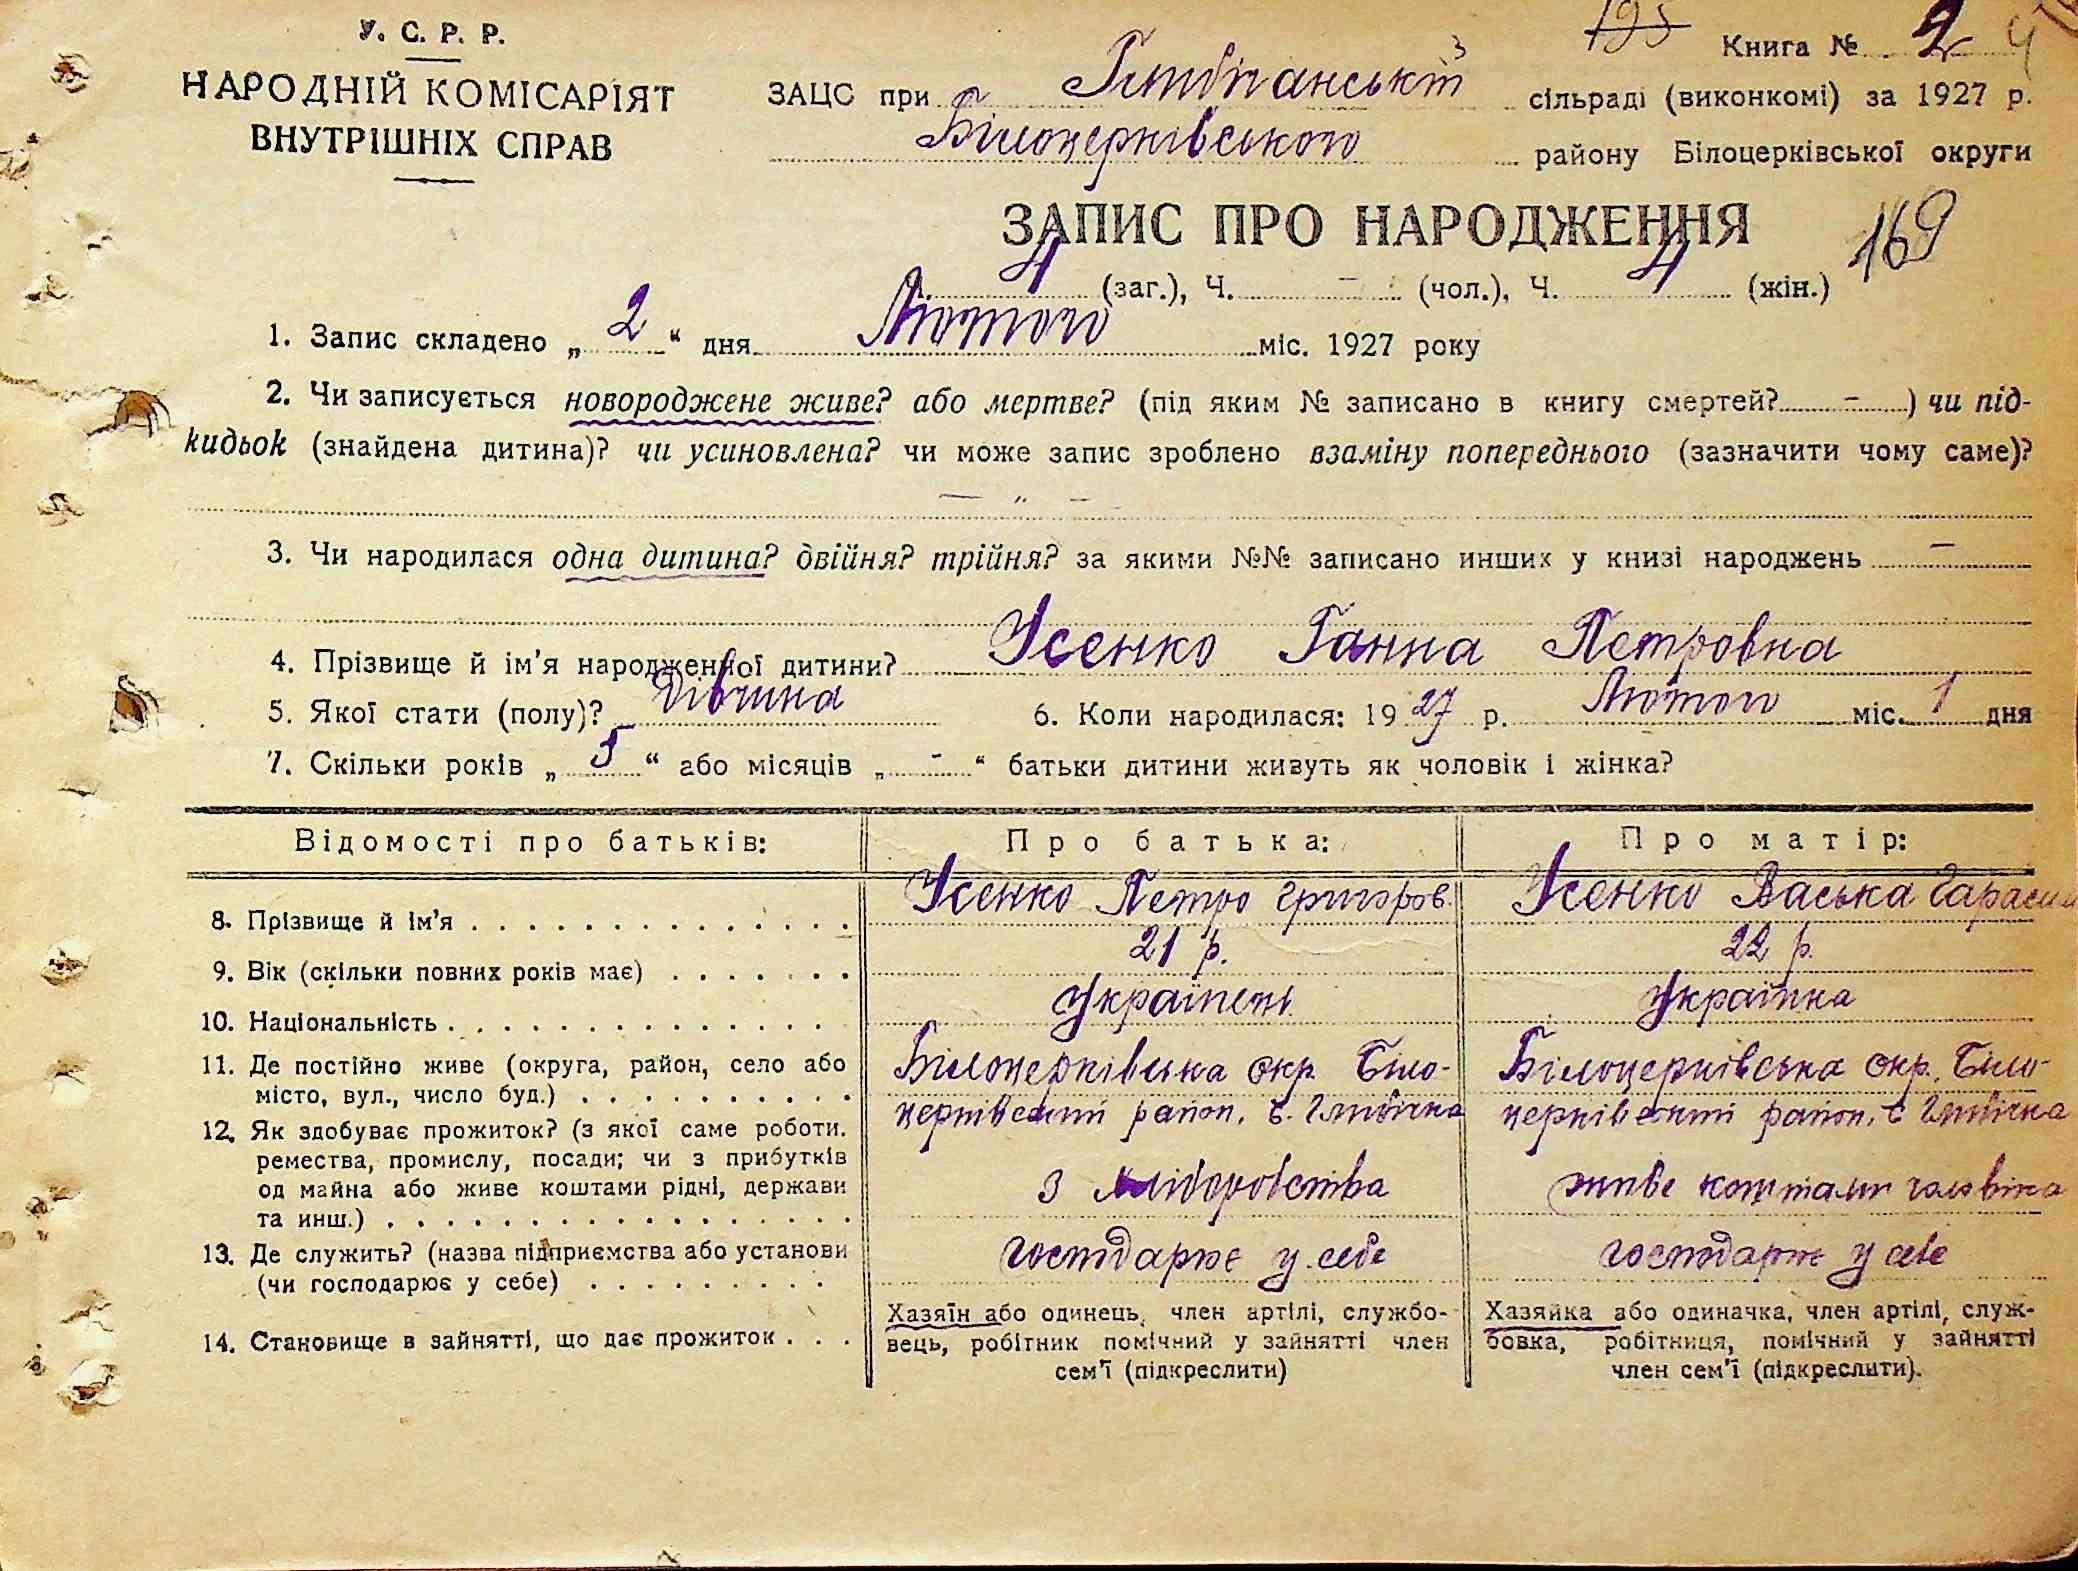 У. С. Р. Р.
НАРОДНІЙ КОМІСАРІЯТ
ВНУТРІШНІХ СПРАВ
195 Книга № 2 4
ЗАЦС при Глибочанській сільраді (виконкомі) за 1927 р.
Білоцерківського району Білоцерківської округи
ЗАПИС ПРО НАРОДЖЕННЯ 169
4 (заг.), Ч. – (чол.), Ч. 4 (жін.)
1. Запис складено „ 2 “ дня Лютого міс. 1927 року
2. Чи записується новороджене живе? або мертве? (під яким № записано в книгу смертей? - ) чи під-
кидьок (знайдена дитина)? чи усиновлена? чи може запис зроблено взаміну попереднього (зазначити чому саме)?
— „ —
3. Чи народилася одна дитина? двійня? трійня? за якими №№ записано инших у книзі народжень –
4. Прізвище й ім'я народженної дитини? Усенко Ганна Петровна
5. Якої стати (полу)? Дівчина 6. Коли народилася: 1927 р. Лютого міс. 1 дня
7. Скільки років „ 5 “ або місяців „ - “ батьки дитини живуть як чоловік і жінка?
Відомості про батьків: Про батька: Про матір:
8. Прізвище й ім'я Усенко Петро Григоров. Усенко Васька Гарасим
9. Вік (скільки повних років має) 21 р. 22 р.
10. Національність Українець Українка
11. Де постійно живе (округа, район, село або Білоцерківська окр. Біло- Білоцерківська окр. Біло-
місто, вул., число буд.) церківский район, с. Глибічка церківский район, с Глибічка
12. Як здобуває прожиток? (з якої саме роботи.
ремества, промислу, посади; чи з прибутків
од майна або живе коштами рідні, держави З хліборобства живе коштами чоловіка
та инш.)
13. Де служить? (назва підприємства або установи господарює у себе господарює у себе
(чи господарює у себе)
14. Становище в зайнятті, що дає прожиток
Хазяїн або одинець, член артілі, службо-
вець, робітник помічний у зайнятті член
сем'ї (підкреслити)
Хазяйка або одиначка, член артілі, служ-
бовка, робітниця, помічний у зайнятті
член сем'ї (підкреслити).